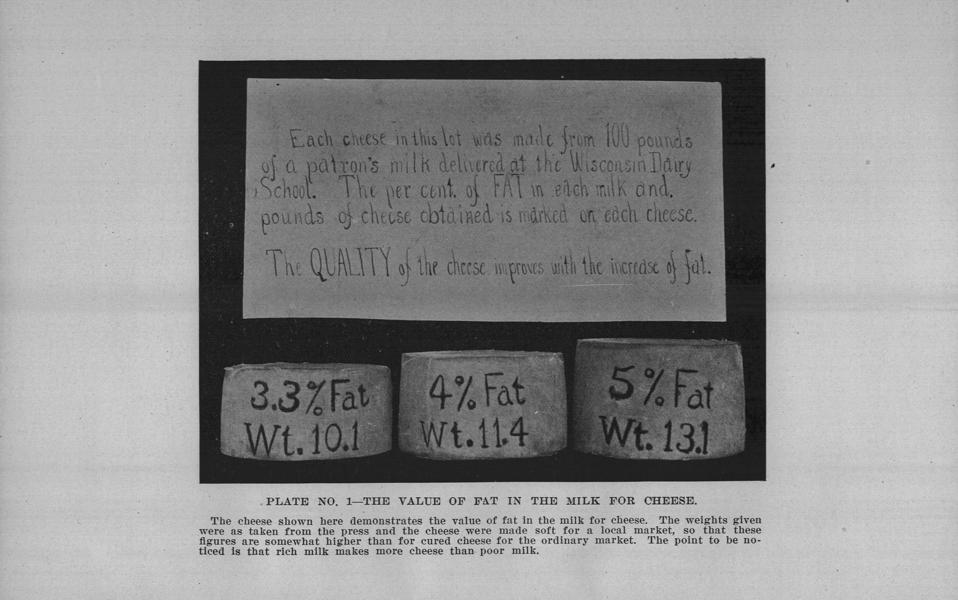 Each cheese in this lot was made from 100 pounds
of a patron's milk delivered at the Wisconsin Dairy
School. The per cent. of FAT in each milk and
pounds of cheese obtained is marked on each cheese.
The QUALITY of the cheese improves with the increase of fat.
3.3% Fat
Wt. 10.1
4% Fat
Wt. 11.4
5% Fat
Wt. 13.1
PLATE NO. 1—THE VALUE OF FAT IN THE MILK FOR CHEESE.
The cheese shown here demonstrates the value of fat in the milk for cheese. The weights given
were as taken from the press and the cheese were made soft for a local market, so that these
figures are somewhat higher than for cured cheese for the ordinary market. The point to be no-
ticed is that rich milk makes more cheese than poor milk.